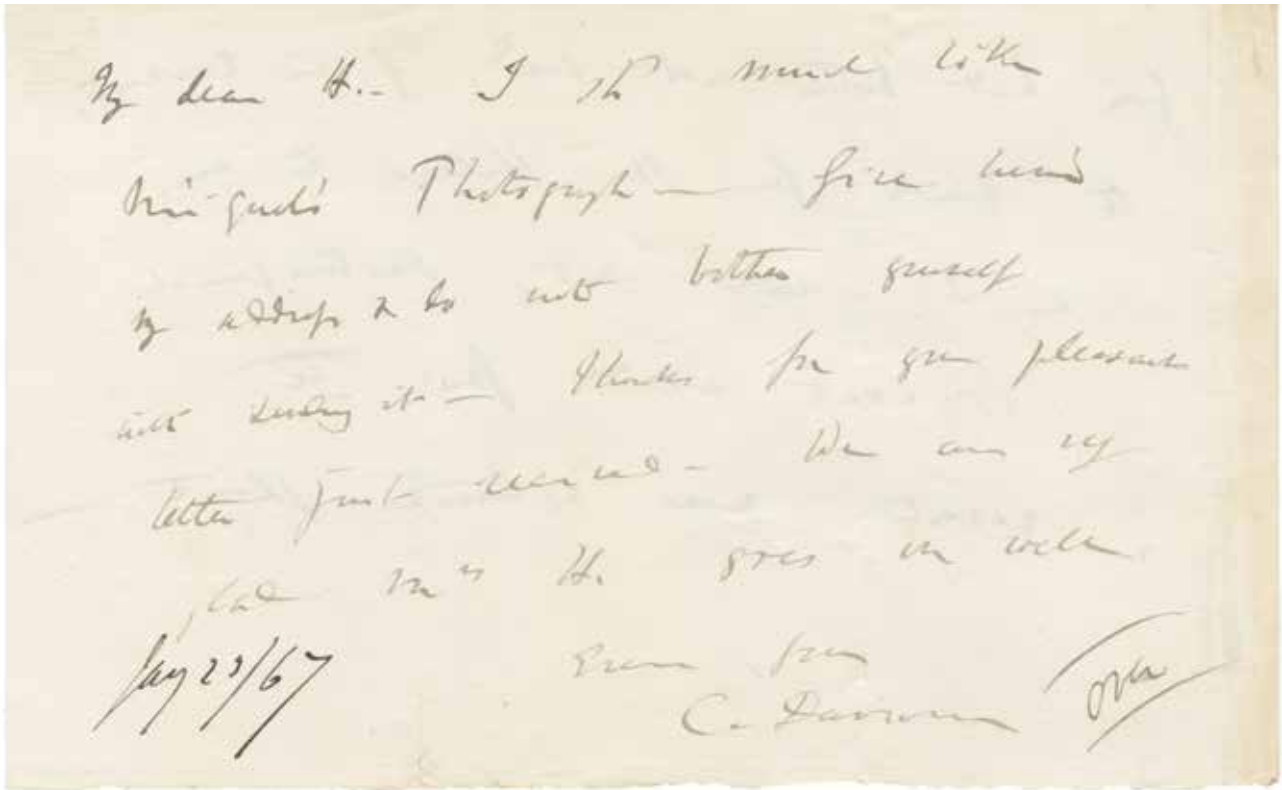 My dear H.— I shd much like
Miquel's Photograph — Give him
my address & do not bother yourself
with sending it — Thanks for your pleasant
letter just received — We are very
glad Mrs H. goes on well
Jay 23/67
Ever yours
C. Darwin
over